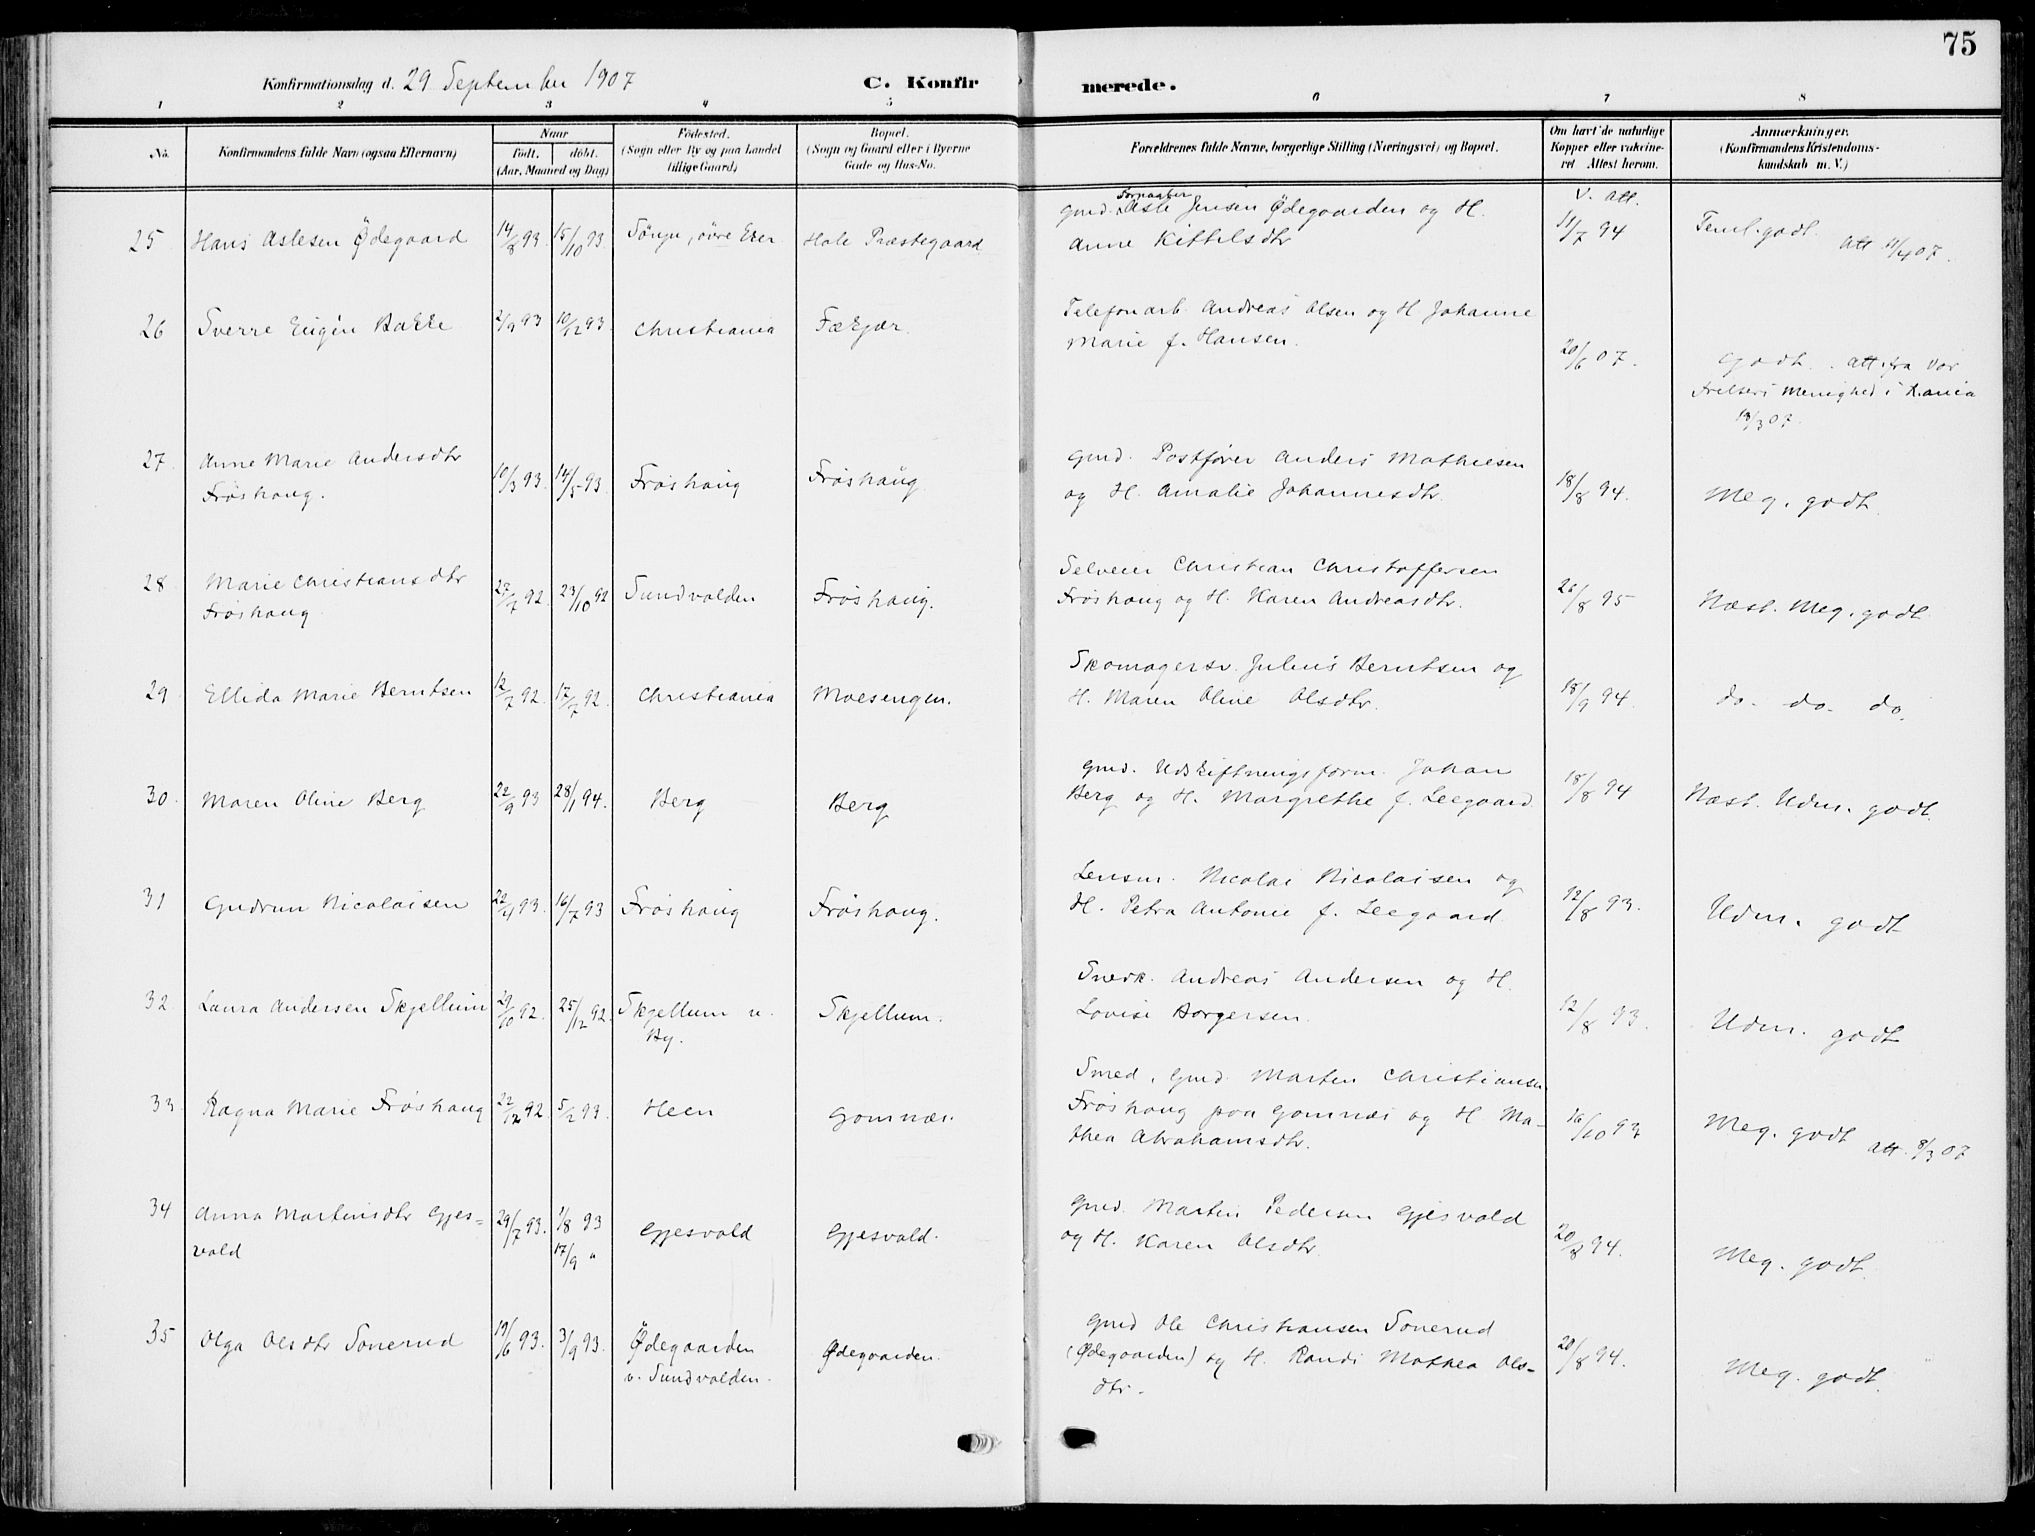 75
Konfirmationsdag d. 29 September 1907 C. Konfirmerede.
1 2 3 4 5 6 7 8
No. Konfirmandens fulde Navn (ogsaa Efternavn) Naar født. døbt. (Aar, Maaned og Dag) Fødested. (Sogn eller By og paa Landet tillige Gaard) Bopæl. (Sogn og Gaard eller i Byerne Gade og Hus-No. Forældrenes fulde Navne, borgerlige Stilling (Næringsvei) og Bopæl. Om havt de naturlige Kopper eller vakcineret Attest herom. Anmærkninger. (Konfirmandens Kristendomskundskab m. V.)
25 Hans Aslesen Ødegaard 14/8 93 15/10 93 øvre Eker Hole Præstegaard gmd. Forpagter Asle Jensen Ødegaarden og H.
Anne Kittelsdtr V. att. 11/7 94 Teml. godt. att 11/4 07.
26 Sverre Eugén Bakke 2/9 93 10/12 93 Christiania Fækjær. Telefonarb. Andreas Olsen og H. Johanne
Marie f. Hansen. 20/6 07. Godt. att. fra Vor
Frelsers Menighed i Kr.ania
13/3 07.
27 Anne Marie Andersdtr
Frøshaug. 10/3 93. 14/5 93 Frøshaug Frøshaug gmd. Postfører Anders Mathiesen
og H. Amalie Johannesdtr. 18/8 94. Meg. godt.
28 Marie Christiansdtr
Frøshaug 27/7 92. 23/10 92 Sundvolden Frøshaug. Selveier Christian Christoffersen
Frøshaug og H. Karen Andreasdtr. 26/8 95 Næst. Meg. godt
29 Ellida Marie Berntsen 12/7 92. 17/7 92. Christiania Moesengen. Skomagersv. Julius Berntsen og
H. Maren Oline Olsdtr. 18/9 94. do. do. do.
30. Maren Oline Berg 22/9 93 28/1 94. Berg Berg gmd. Udskiftningsform. Johan
Berg og H. Margrethe f. Leegaard. 18/8 94 Næst. Udm. godt.
31 Gudrun Nicolaisen 22/4 93. 16/7 93 Frøshaug Frøshaug. Lensm. Nicolai Nicolaisen og
H. Petra Antonie f. Leegaard 12/8 93. Udm. godt
32 Laura Andersen Skjellum 29/10 92. 25/12 92. Skjellum u.
By. Skjellum. Snedk. Andreas Andersen og H.
Lovise Borgersen. 12/8 93. Udm. godt
33 Ragna Marie Frøshaug 22/12 92 5/2 93. Heen Gomnæs. Smed, gmd. Morten Christiansen
Frøshaug paa Gomnæs og H. Ma-
thea Abrahamsdtr. 16/10 93 Meg. godt att. 8/3 07
34 Anna Martinsdtr Gjes=
vold 29/7 93. 1/8 93
17/9 " Gjesvold Gjesvold. gmd. Martin Pedersen Gjesvold
og H. Karen Olsdtr. 20/8 94. Meg. godt
35 Olga Olsdtr Sonerud 19/6 93. 3/9 93. Ødegaarden
v. Sundvolden. Ødegaarden. gmd Ole Christiansen Sonerud
(Ødegaarden) og H. Randi Mathea Ols-
dtr. 20/8 94. Meg. godt.